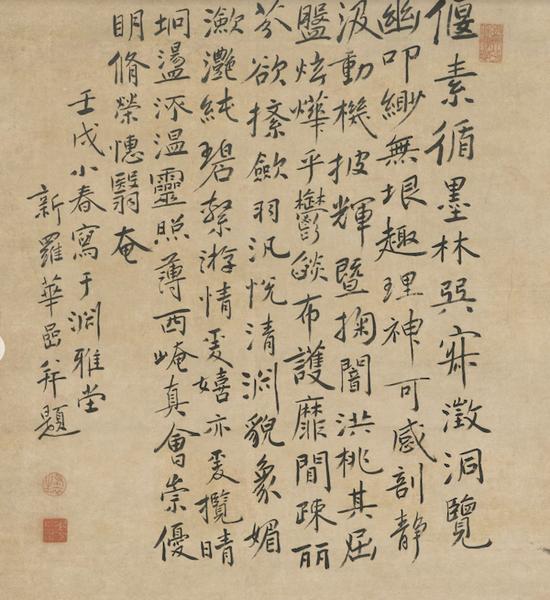 偃素循墨林與寐澂洞覽
幽叩緲無垠趣理神可感剖静
汲動機披輝暨掬闇洪桃其屈
盤炫燁乎鬱燄布護靡間疎丽
芬欲揉歛羽汎悅清渊貌象媚
瀲灧純碧縈游情爰嬉亦爰攬晴
坰盪流溫靈照薄西崦真會崇優
明脩榮憓翳奄
壬戌小春寫于渊雅堂
新羅華嵒并題